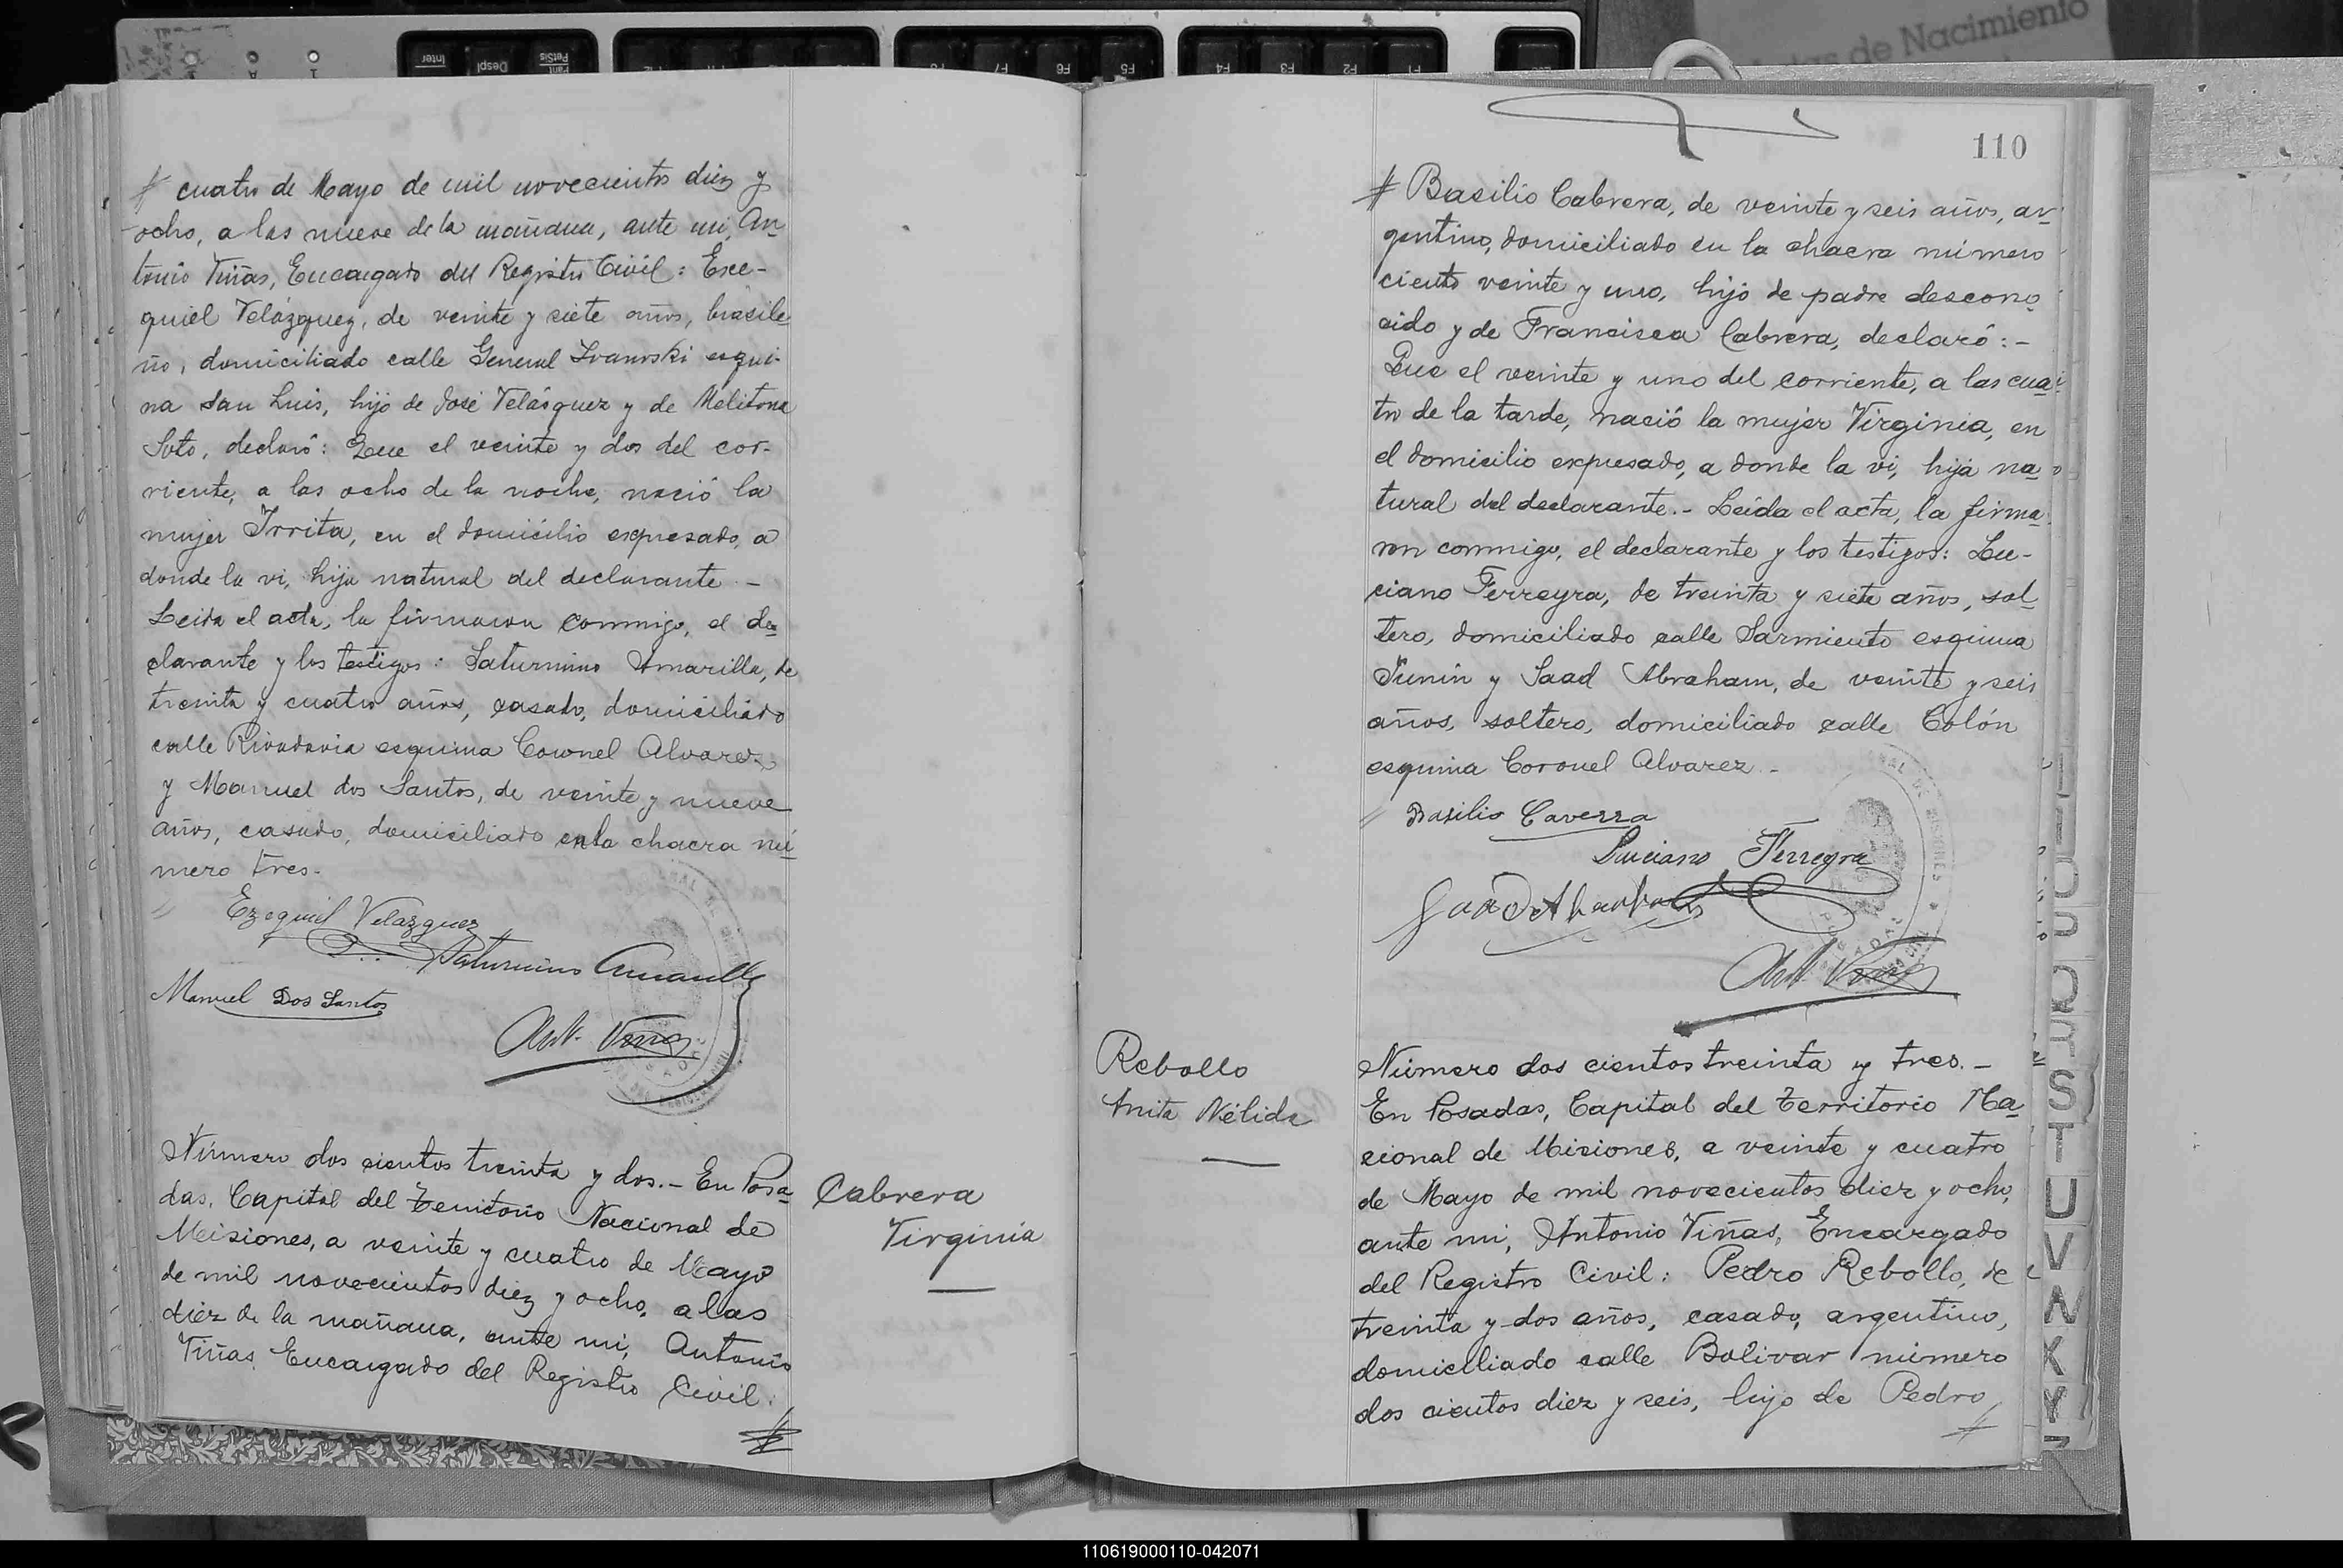 cuatro de Mayo de mil novecientos diez y
ocho, a las nueve de la mañana, ante mi, An
tonio Viñas, Encargado del Registro Civil: Exe-
quiel Velázquez, de veinte y siete años, brasile
ño, domiciliado calle General Ivanoski esqui-
na San Luis, hijo de José Velásquez y de Melitona
Soto, declaró: Que el veinte y dos del cor-
riente, a las ocho de la noche, nació la
mujer Irrita, en el domicilio expresado, a
donde la vi, hija natural del declarante. -
Leida el acta, la firmaron conmigo, el de
clarante y los testigos: Saturnino Amarilla, de
treinta y cuatro años, casado, domiciliado
calle Rivadavia esquina Coronel Alvarez
y Manuel dos Santos, de veinte y nueve
años, casado, domiciliado en la chacra nú
mero tres.
Ezequiel Velazquez
Saturnino Amarilla
Manuel Dos Santos
Ant. Viñas
Número dos cientos treinta y dos. - En Posa
das, Capital del Territorio Nacional de
Misiones, a veinte y cuatro de Mayo
de mil novecientos diez y ocho, a las
diez de la mañana, ante mi, Antonio
Viñas Encargado del Registro Civil:
Cabrera
Virginia
110
Basilio Cabrera, de veinte y seis años, ar
gentino, domiciliado en la chacra número
ciento veinte y uno, hijo de padre descono
cido y de Francisca Cabrera, declaró: -
Que el veinte y uno del corriente, a las cua
tro de la tarde, nació la mujer Virginia, en
el domicilio expresado, a donde la vi, hija na
tural del declarante. - Leída el acta, la firma
ron conmigo, el declarante y los testigos: Lu-
ciano Ferreyra, de treinta y siete años, sol
tero, domiciliado calle Sarmiento esquina
Junín y Saad Abraham, de veinte y seis
años, soltero, domiciliado calle Colón
esquina Coronel Alvarez. -
Basilio Caverra
Luciano Ferreyra
Ant. Viñas
Rebollo
Anita Nélida
Número dos cientos treinta y tres. -
En Posadas, Capital del Territorio Na
cional de Misiones, a veinte y cuatro
de Mayo de mil novecientos diez y ocho,
ante mi, Antonio Viñas, Encargado
del Registro Civil: Pedro Rebollo, de
treinta y dos años, casado, argentino,
domiciliado calle Bolivar número
dos cientos diez y seis, hijo de Pedro
Q
R
S
T
U
V
W
K
Y
Z
de Nacimiento
Inter
Despl
F7
F6
F5
F4
F3
F2
F1
110619000110-042071